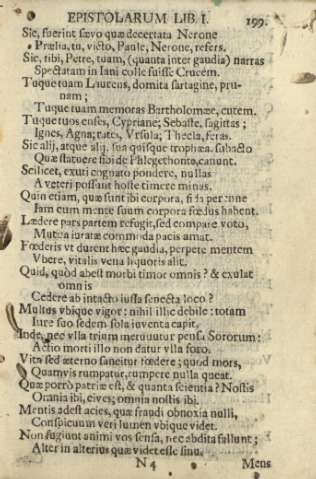 EPISTOLARUM LIB. I. 199.
Sic, fuerint sævo quæ decertata Nerone
Prælia, tu, victo, Paule, Nerone, refers.
Sic, tibi, Petre, tuam, (quanta inter gaudia) narras
Spectatam in Iani colle fuisse Crucem.
Tuque tuam Laurens, domita sartagine, pru-
nam;
Tuque tuam memoras Bartholomæe, cutem.
Tuque tuos enses, Cypriane; Sebaste, sagittas;
Ignes, Agna; rates, Vrsula; Thecla, feras.
Sic alij, atque alij, sua quisque trophæa, subacto
Quæ statuere sibi de Phlegethonte, canunt.
Scilicet, exuti cognato pondere, nullas
A veteri possunt hoste timere minas.
Quin etiam, quæ sunt ibi corpora, fida perenne
Iam cum mente suum corpora fœdus habent.
Lædere pars partem refugit, sed compare voto,
Mutua iuratæ commoda pacis amat.
Fœderis vt durent hæc gaudia, perpete mentem
Vbere, vitalis vena liquoris alit.
Quid, quòd abest morbi timor omnis? & exulat
omnis
Cedere ab intacto iussa senecta loco?
Multus vbique vigor: nihil illic debile: totam
Iure suo sedem sola iuventa capit.
Inde, nec vlla trium metuuntur pensa Sororum:
Actio morti illo non datur vlla foro.
Vita sed æterno sancitur fœdere; quod mors,
Quamvis rumpatur, rumpere nulla queat.
Quæ porrò patriæ est, & quanta scientia? Nostis
Omnia ibi, cives; omnia nostis ibi.
Mentis adest acies, quæ fraudi obnoxia nulli,
Conspicuum veri lumen vbique videt.
Non fugiunt animi vos sensa, nec abdita fallunt;
Alter in alterius quæ videt esse sinu.
N 4 Mens